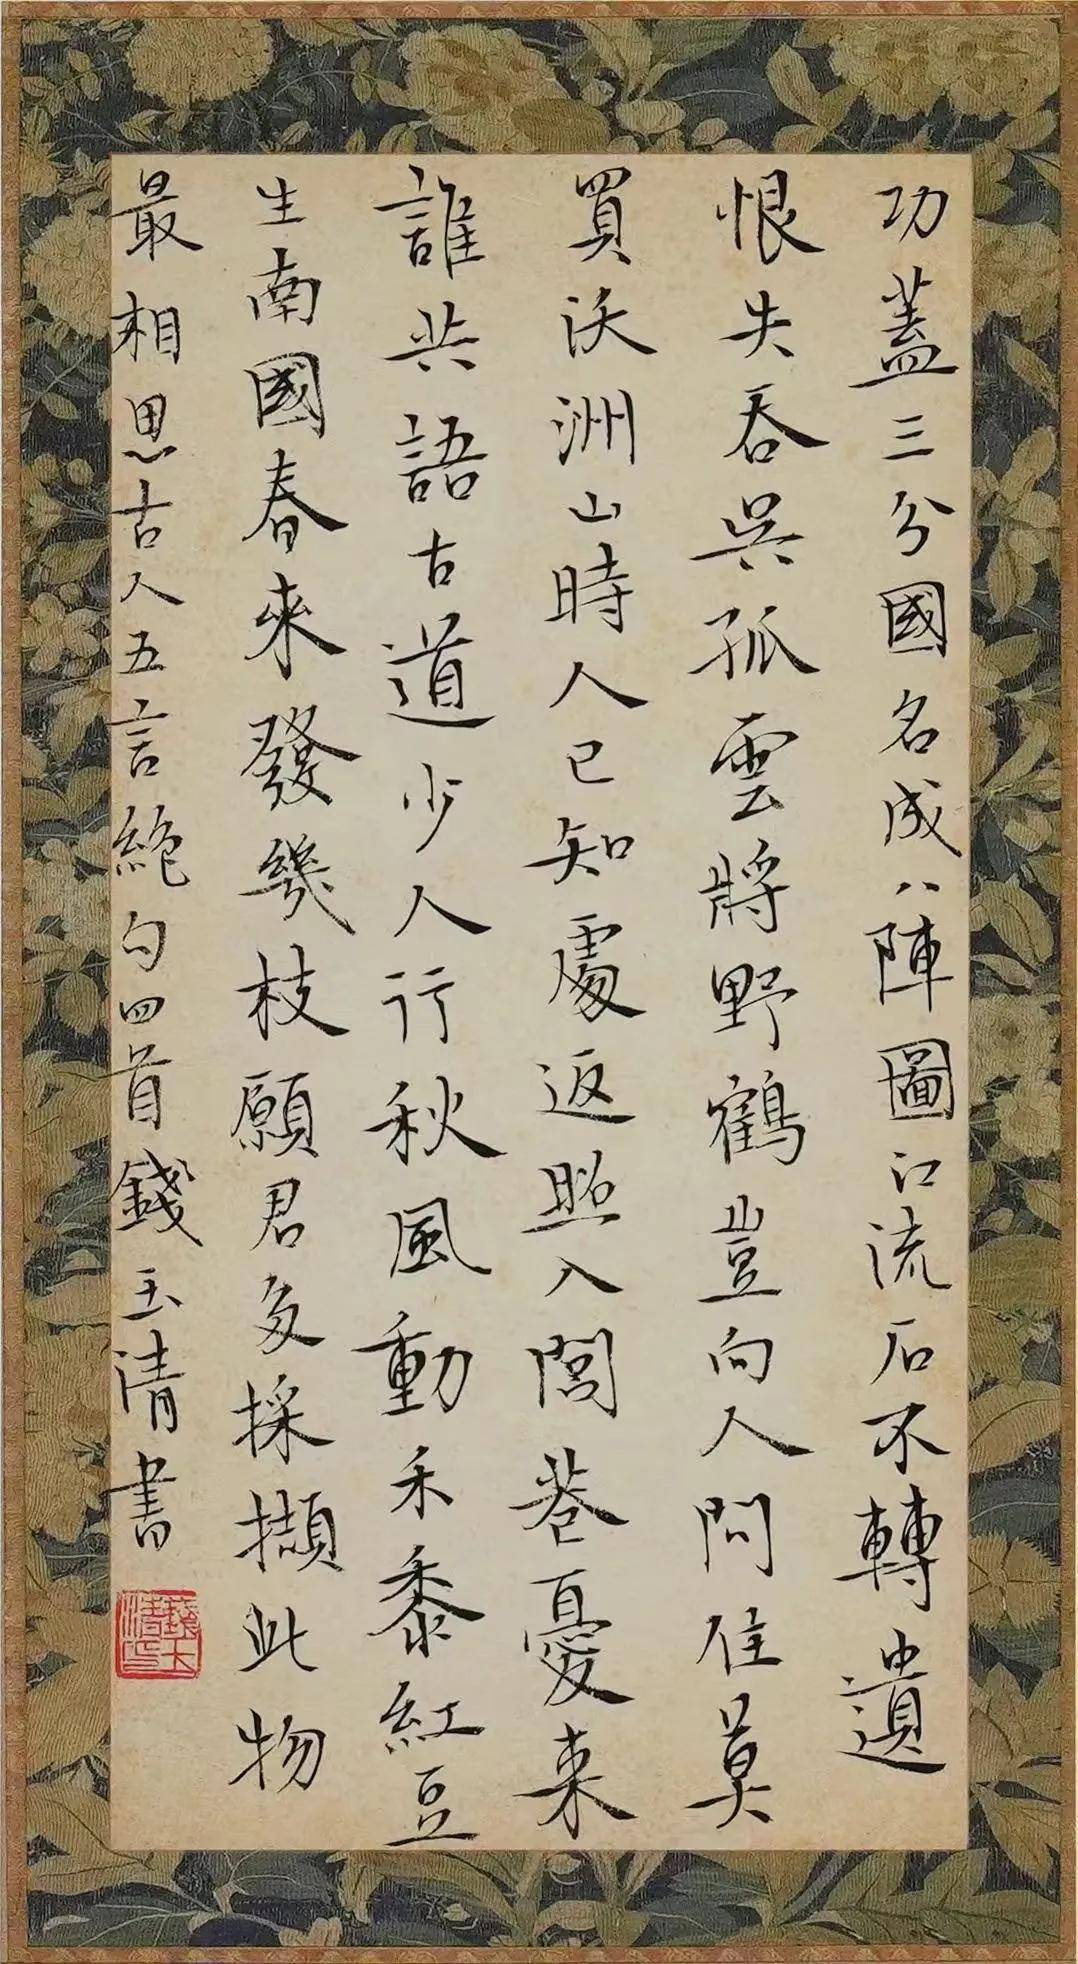 功蓋三分國名成八陣圖江流石不轉遺
恨失吞吳孤雲將野鶴豈向人間住莫
買沃洲山時人已知處返照入閭巷憂來
誰共語古道少人行秋風動禾黍紅豆
生南國春來發幾枝願君多採擷此物
最相思古人五言絕句四首錢玉清書
錢玉清印